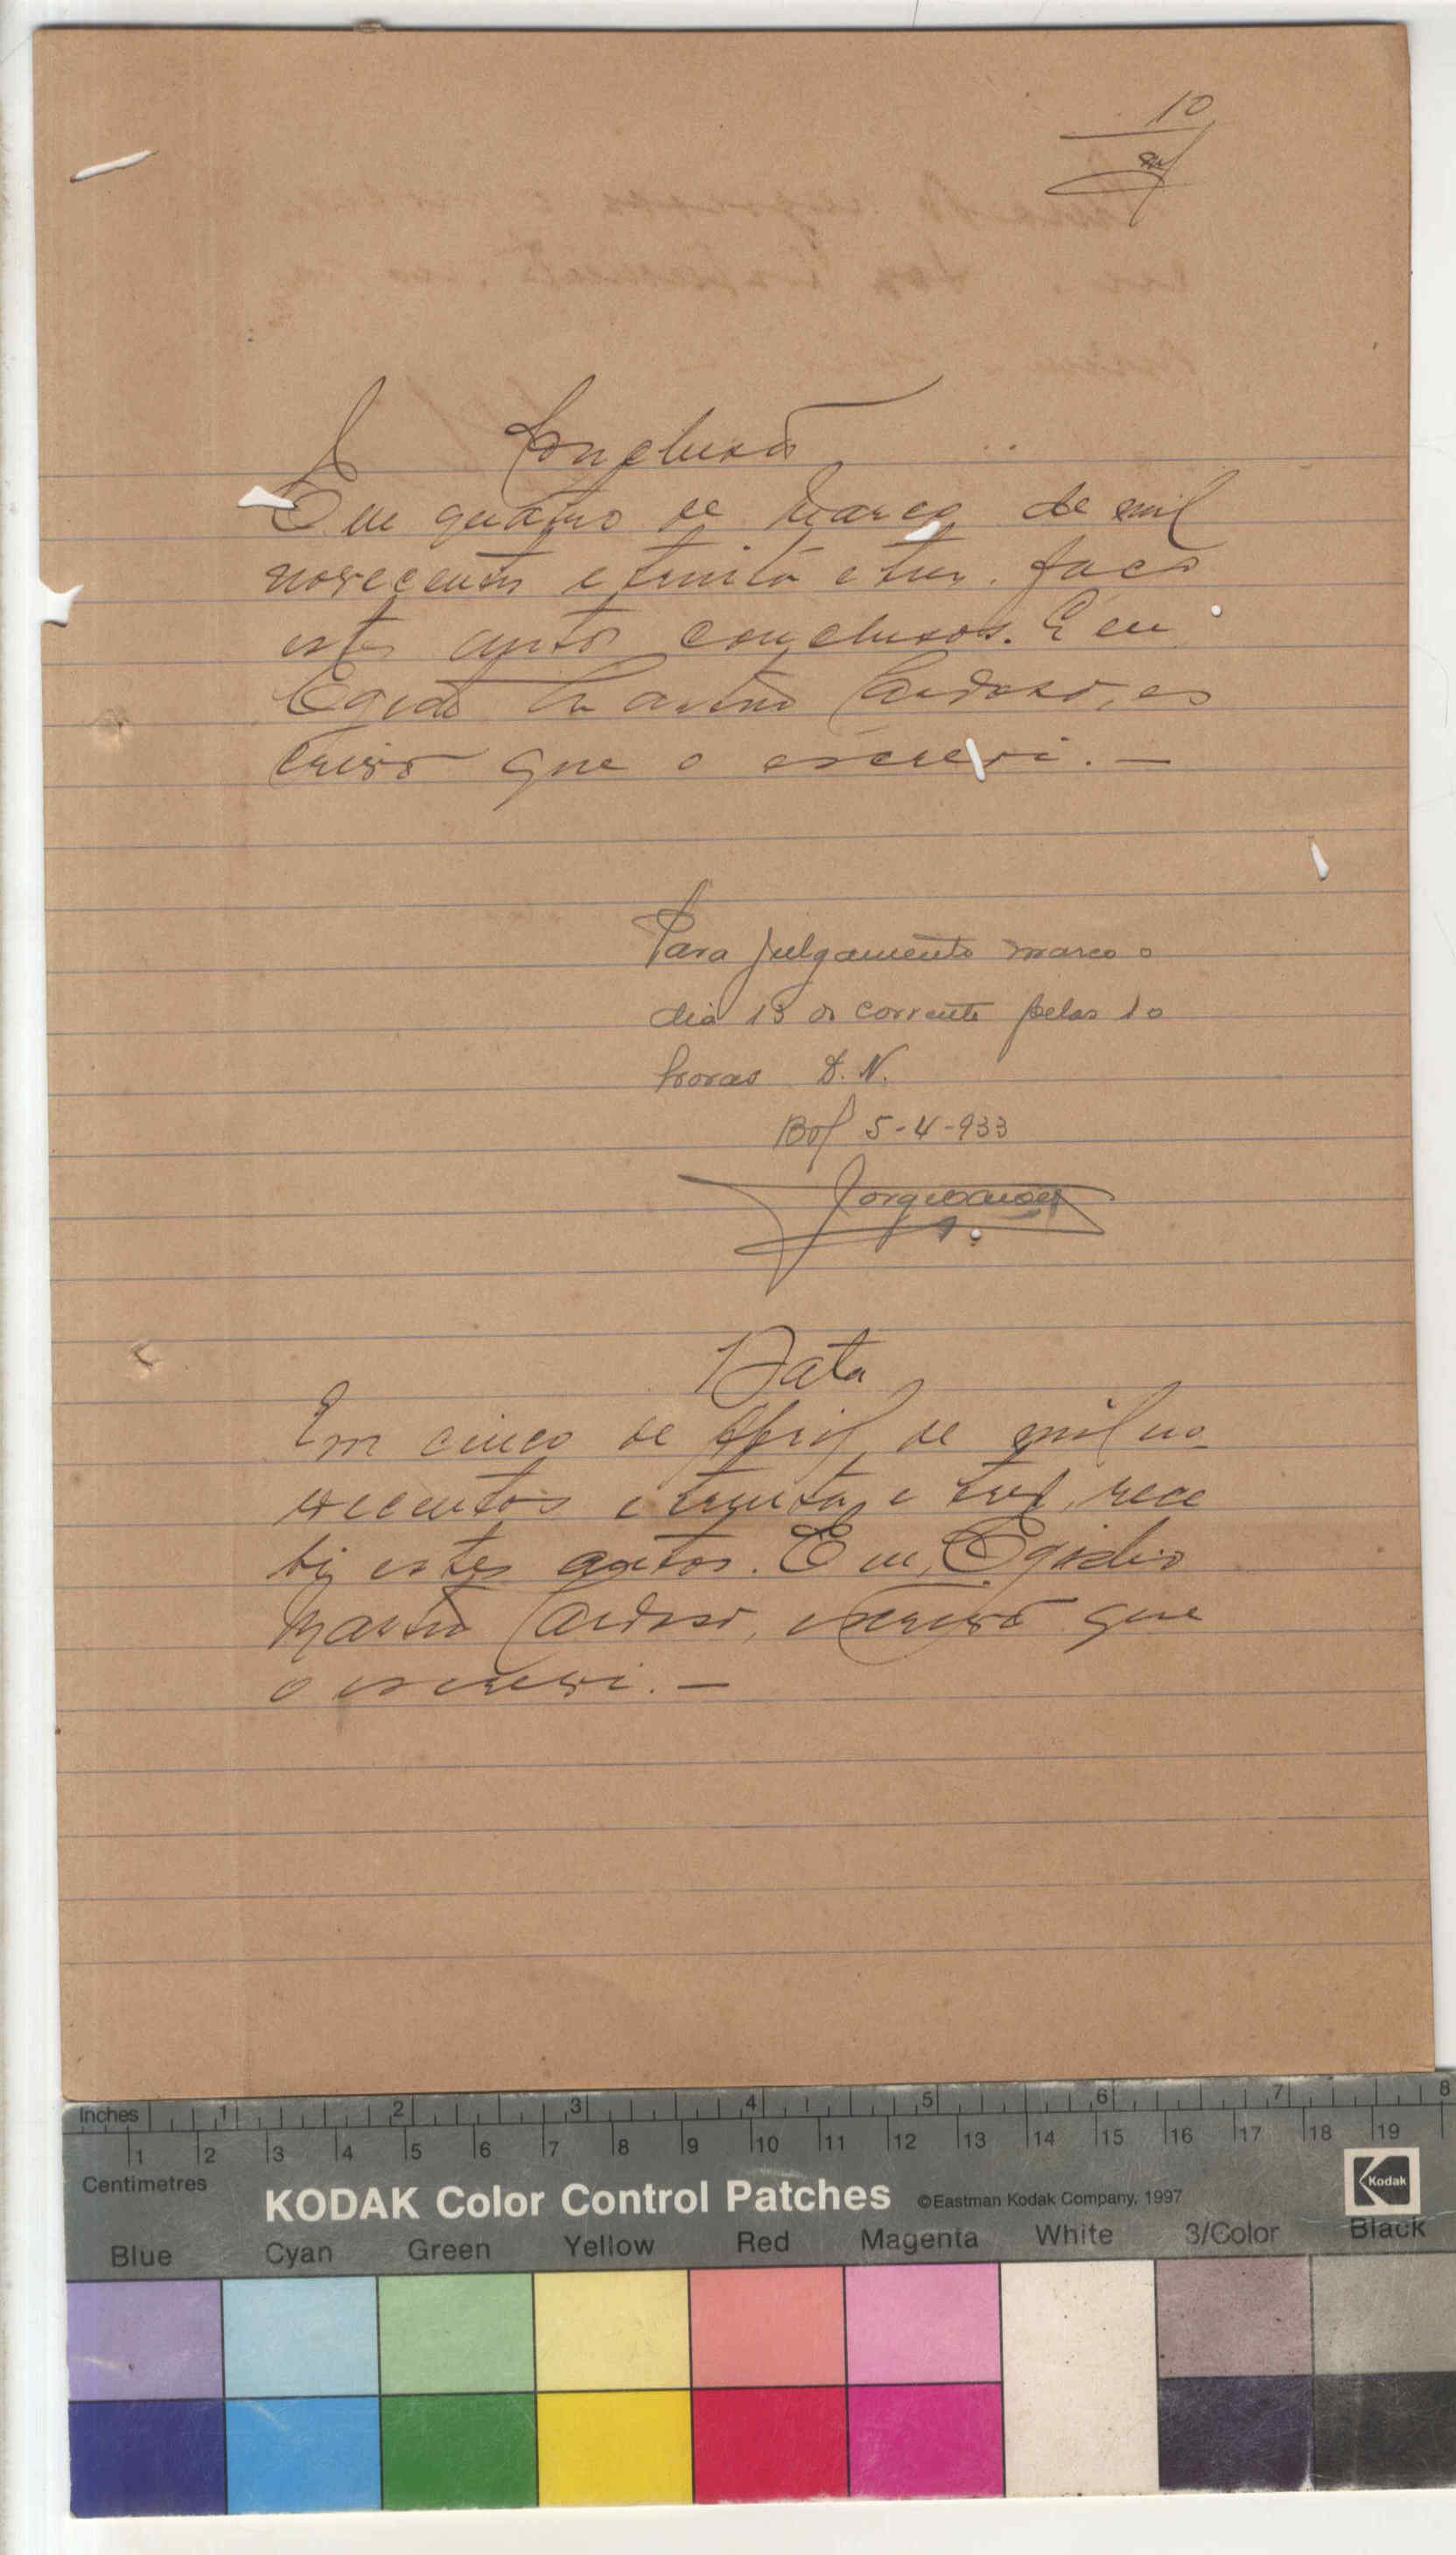 10
Conclusão
Em quatro de Março de mil
novecentos e trinta e tres. faço
estes autos conclusos. E eu
Egidio Martins Cardoso, es
crivão que o escrevi. —
Para julgamento marco o
dia 13 do corrente pelas 10
horas D. N.
Bof 5-4-933
Data
Em cinco de Abril, de mil no
vecentos e trinta e tres, rece
bi estes autos. E eu, Egidio
Martins Cardoso, escrivão que
o escrevi. —
Inches 1 2 3 4 5 6 7 8
1 2 3 4 5 6 7 8 9 10 11 12 13 14 15 16 17 18 19
Centimetres
KODAK Color Control Patches ©Eastman Kodak Company, 1997 Kodak
Blue Cyan Green Yellow Red Magenta White 3/Color Black